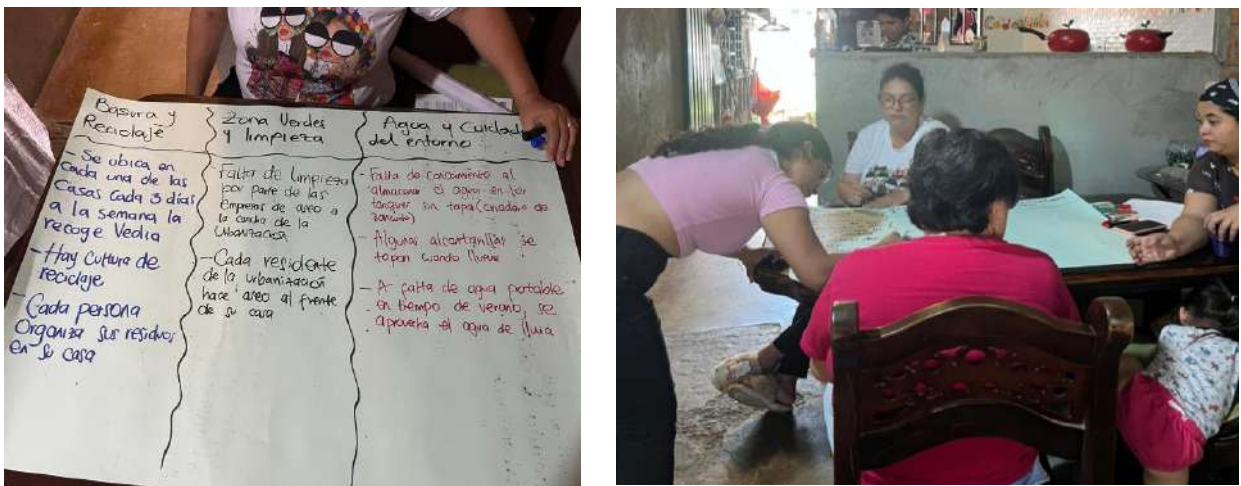 Basura y
Reciclaje
- Se ubica en
Cada una de las
Casas Cada 3 días
a la semana la
recoge Veolia
- Hay Cultura de
reciclaje
- Cada persona
Organiza sus residuos
en su casa
Zona Verdes
y limpieza
Falta de limpieza
por parte de las
Empresas de aseo a
la cancha de la
Urbanización
- Cada residente
de la urbanización
hace aseo al frente
de su casa
Agua y Cuidado
del entorno
- Falta de conocimiento al
almacenar el agua en los
tanques sin tapa (criadero de
zancudo)
- Algunas alcantarillas se
tapan cuando llueve
- A falta de agua potable
en tiempo de verano, se
aprovecha el agua de lluvia